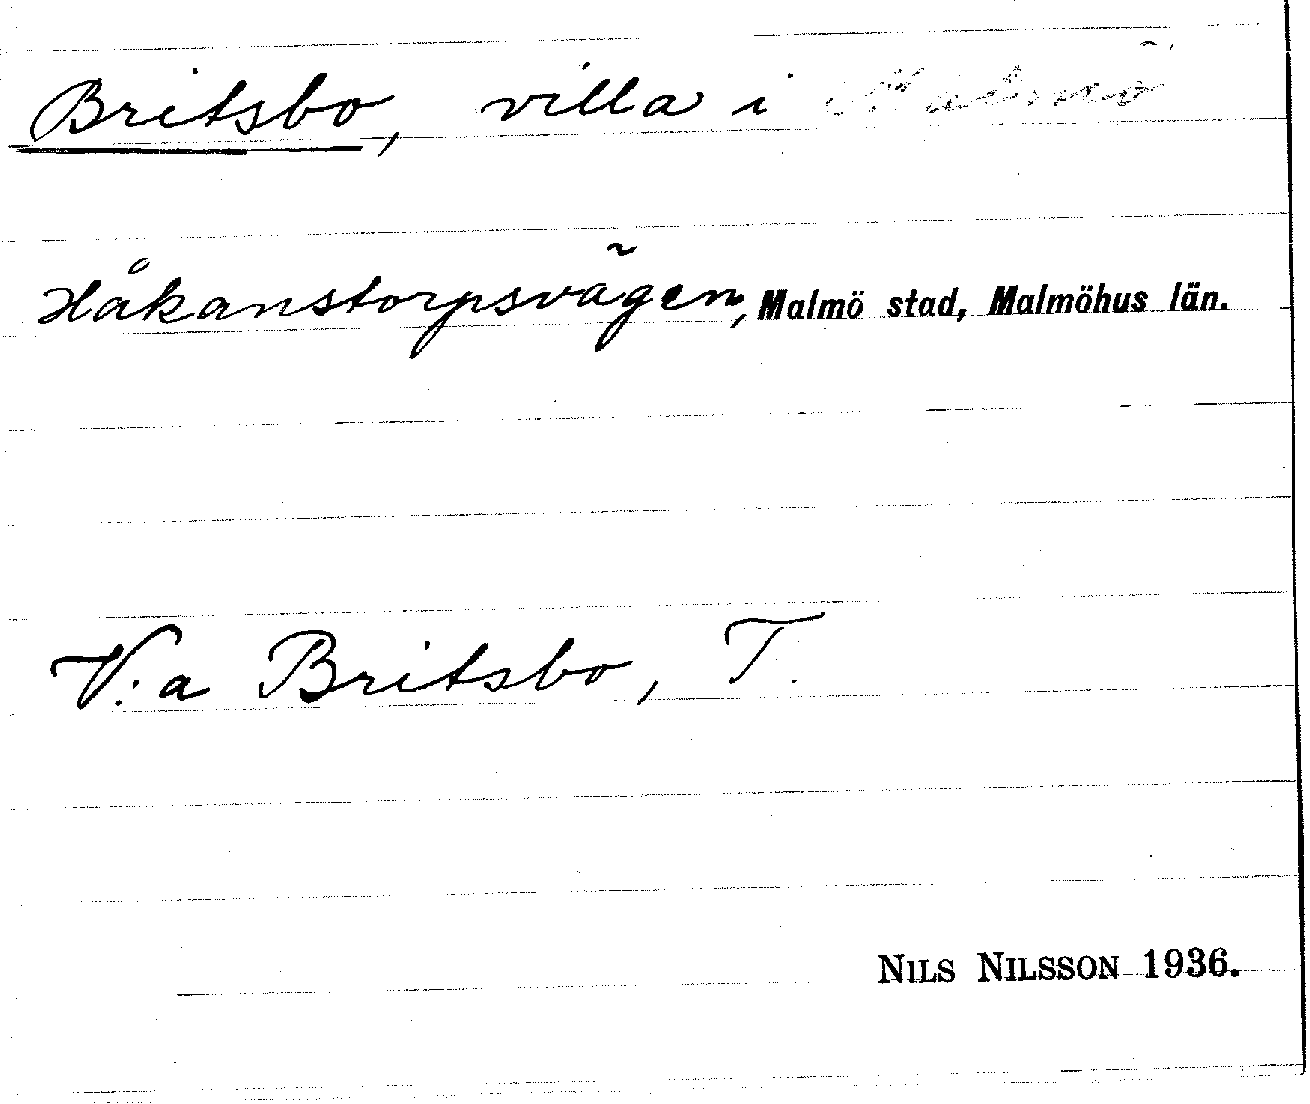 Britsbo, villa i Malmö
Håkanstorpsvägen, Malmö stad, Malmöhus län.
V:a Britsbo, T.
NILS NILSSON 1936.